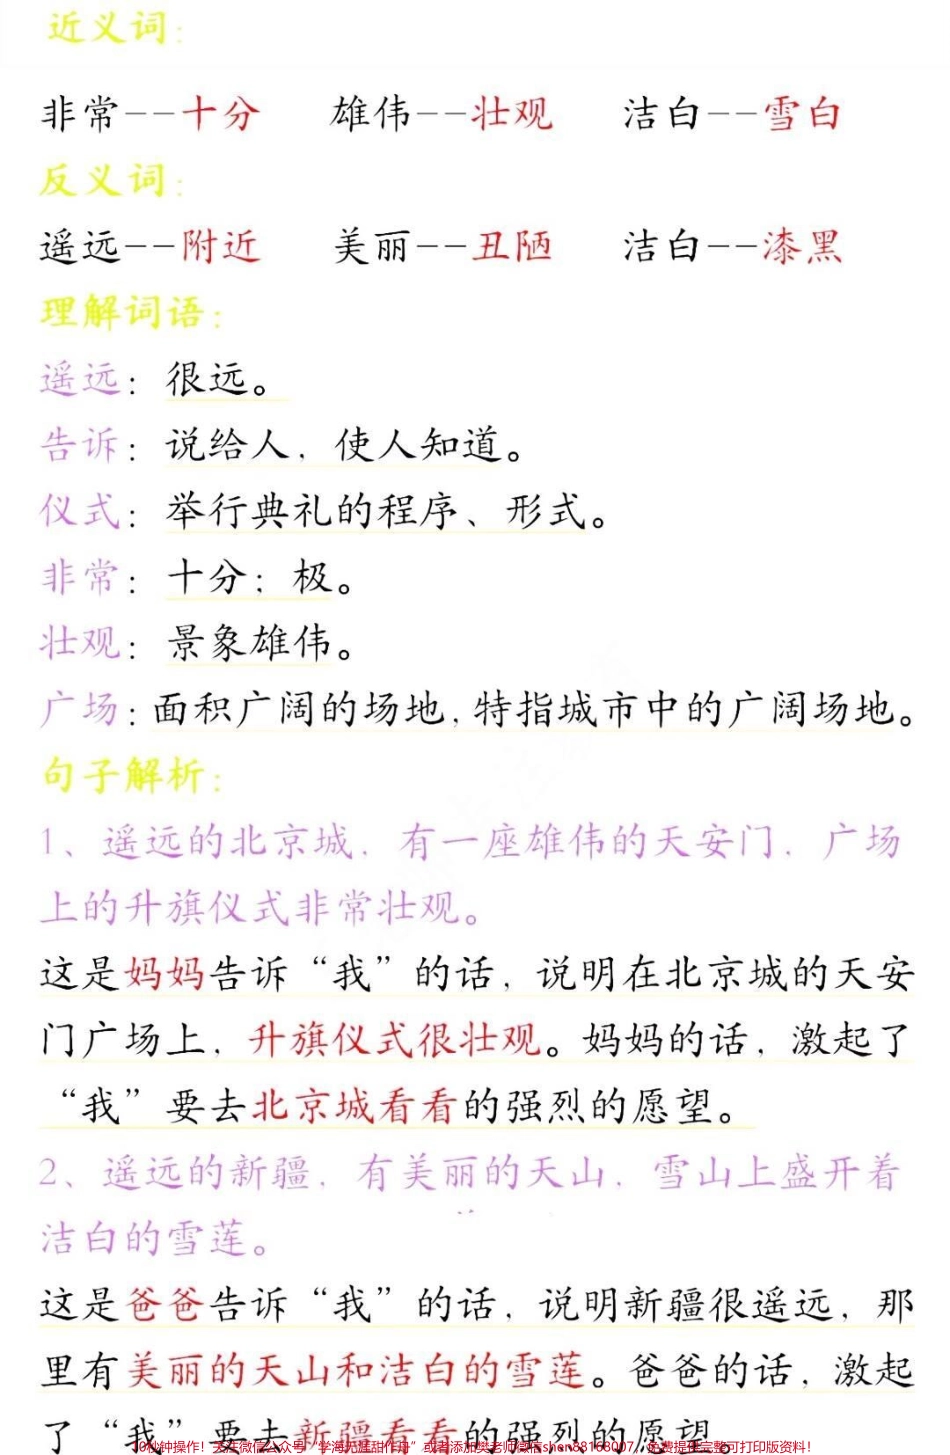 近义词：
非常--十分 雄伟--壮观 洁白--雪白
反义词：
遥远--附近 美丽--丑陋 洁白--漆黑
理解词语：
遥远：很远。
告诉：说给人，使人知道。
仪式：举行典礼的程序、形式。
非常：十分；极。
壮观：景象雄伟。
广场：面积广阔的场地，特指城市中的广阔场地。
句子解析：
1、遥远的北京城，有一座雄伟的天安门，广场
上的升旗仪式非常壮观。
这是妈妈告诉“我”的话，说明在北京城的天安
门广场上，升旗仪式很壮观。妈妈的话，激起了
“我”要去北京城看看的强烈的愿望。
2、遥远的新疆，有美丽的天山，雪山上盛开着
洁白的雪莲。
这是爸爸告诉“我”的话，说明新疆很遥远，那
里有美丽的天山和洁白的雪莲。爸爸的话，激起
了“我”要去新疆看看的强烈的愿望
10秒钟操作！关注微信公众号“学海无涯甜作舟”或者添加樊老师微信shan88168007，免费提供完整可打印版资料！